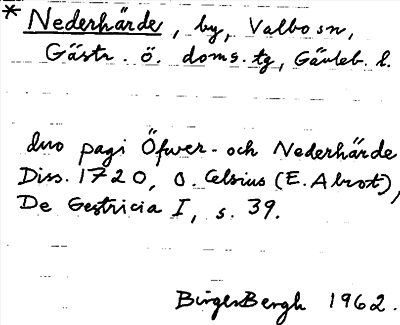 * Nederhärde, by, Valbo sn,
Gästr. ö. doms.tg, Gävleb. l.
duo pagi Öfwer- och Nederhärde
Diss. 1720, O. Celsius (E. Abrot),
De Gestricia I, s. 39.
Birger Bergh 1962.